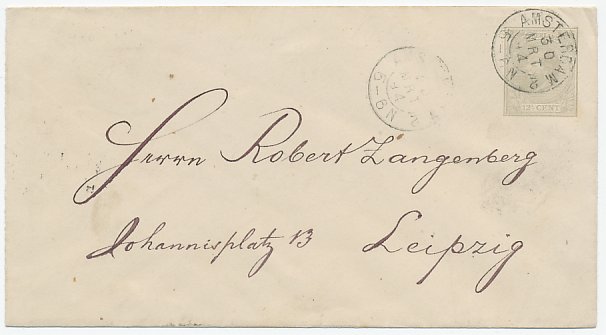 AMSTERDAM
30
MRT
94
12½ CENT
Herrn Robert Zangenberg
Johannisplatz 13 Leipzig